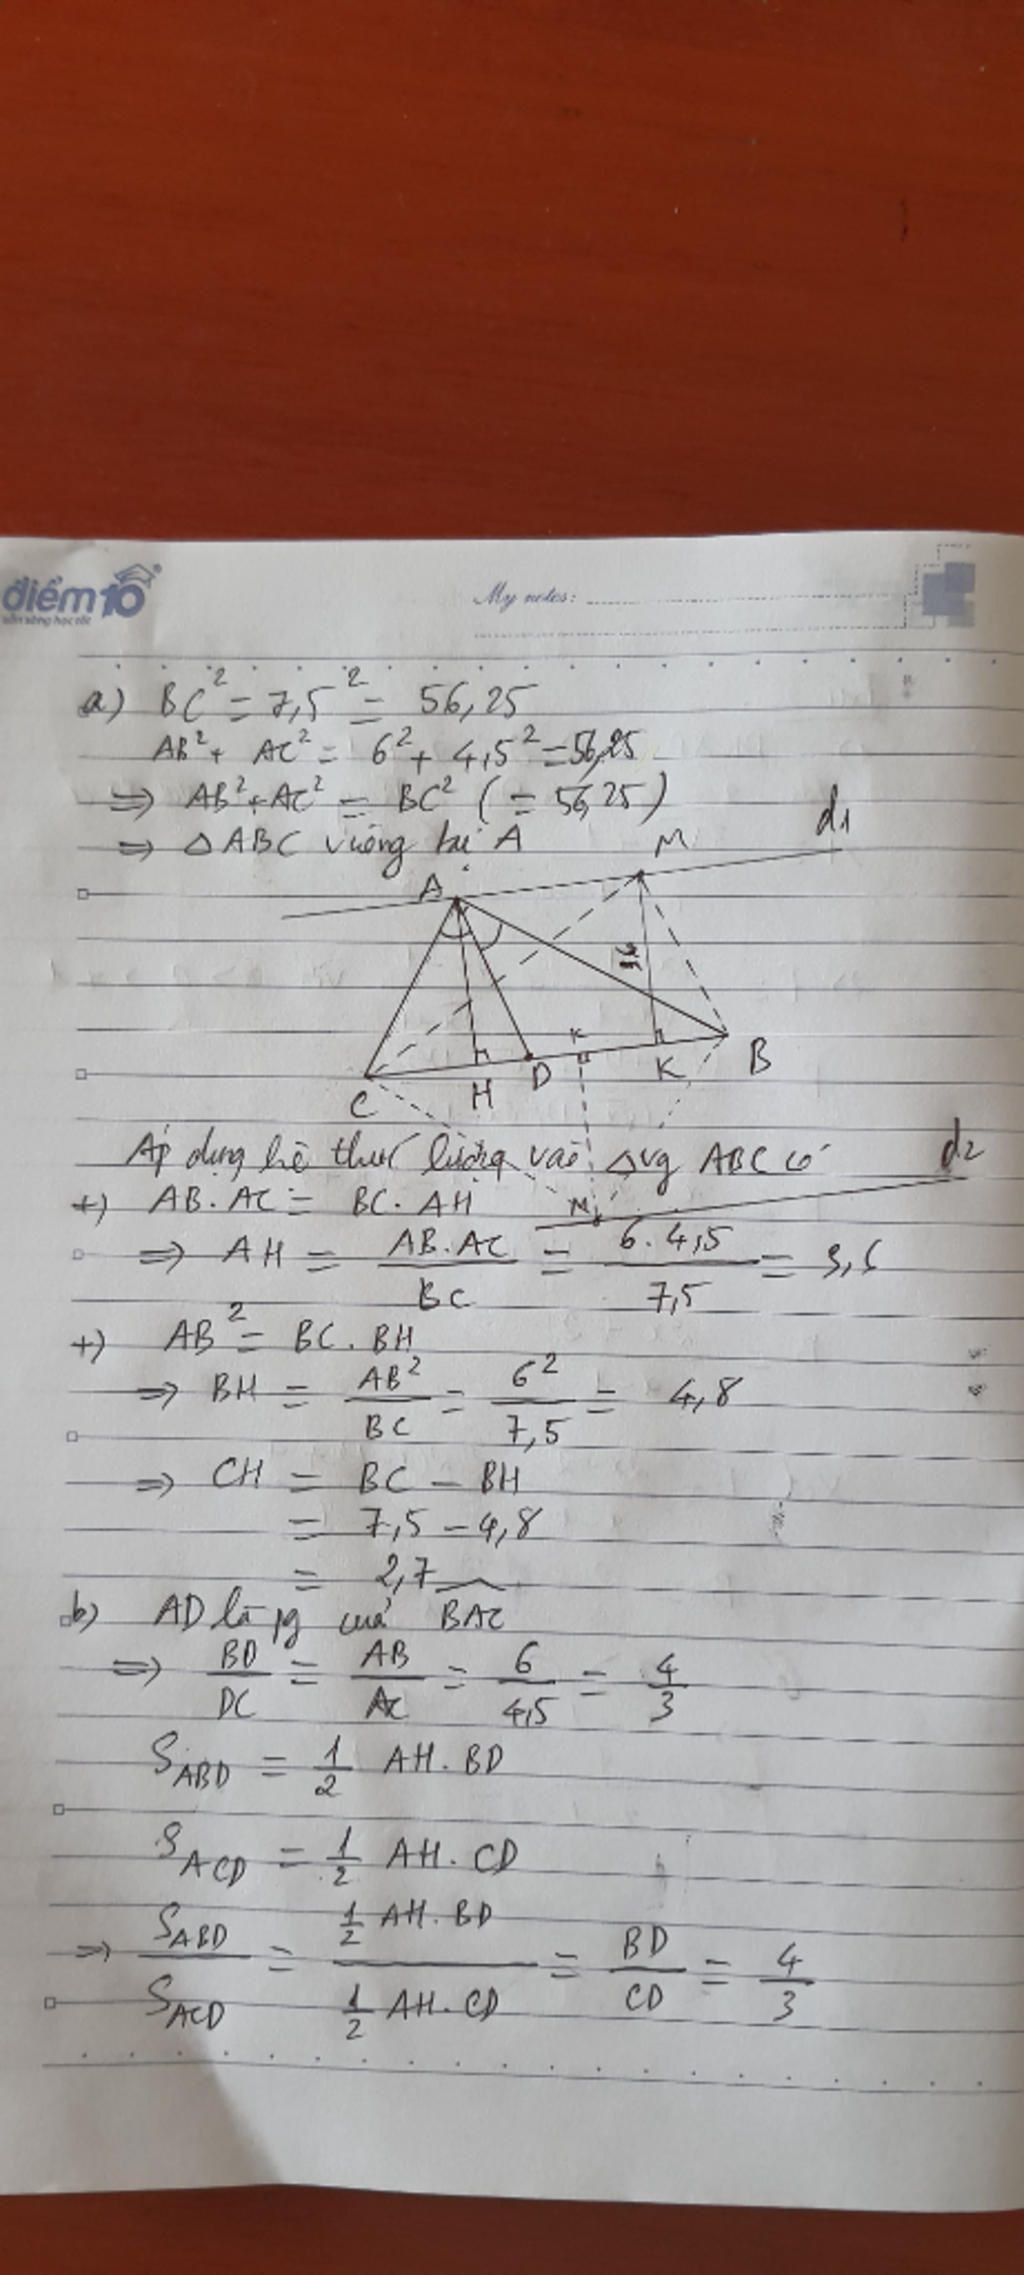 điểm10
My notes:
a) BC² = 7,5² = 56,25
AB² + AC² = 6² + 4,5² = 56,25
⇒ AB² + AC² = BC² (= 56,25)
⇒ △ABC vuông tại A
d1
M
A
K
K
B
D
H
C
Áp dụng hệ thức lượng vào △vg ABC có
d2
M
+) AB.AC = BC.AH
⇒ AH = AB.AC / BC = 6.4,5 / 7,5 = 3,6
+) AB² = BC.BH
⇒ BH = AB² / BC = 6² / 7,5 = 4,8
⇒ CH = BC - BH
= 7,5 - 4,8
= 2,7
b) AD là pg của BAC
⇒ BD / DC = AB / AC = 6 / 4,5 = 4 / 3
S ABD = 1/2 AH.BD
S ACD = 1/2 AH.CD
⇒ S ABD / S ACD = 1/2 AH.BD / 1/2 AH.CD = BD / CD = 4 / 3